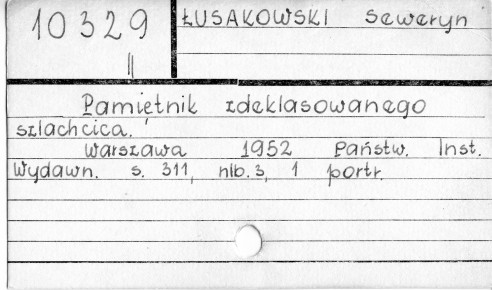 10329
II
ŁUSAKOWSKI Seweryn
Pamiętnik zdeklasowanego
szlachcica.
Warszawa 1952 Państw. Inst.
Wydawn. s. 311, nlb. 3, 1 portr.